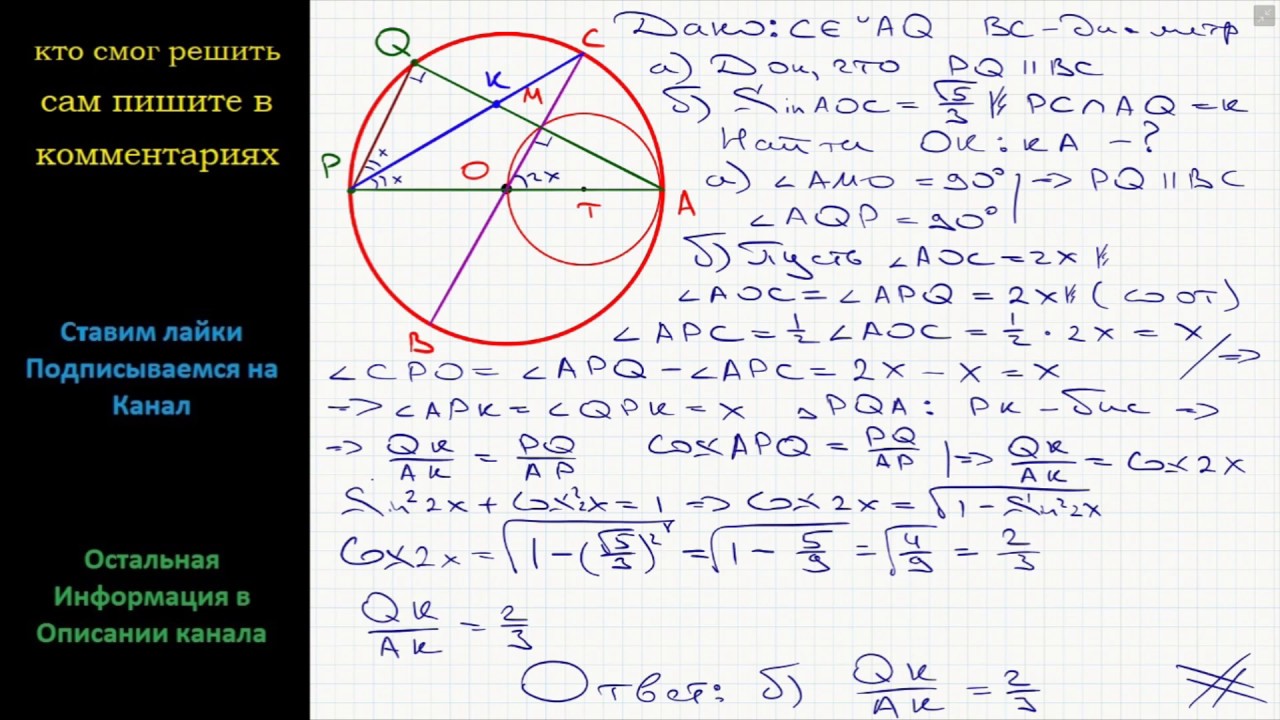 кто смог решить
сам пишите в
комментариях
Ставим лайки
Подписываемся на
Канал
Остальная
Информация в
Описании канала
Q
C
K
M
P
x
x
O
2x
T
A
B
Дано: C∈ ᵕAQ BC – диаметр
а) Док, что PQ || BC
б) Sin AOC = √5/3 PC ∩ AQ = K
Найти QK : KA – ?
а) ∠AMO = 90° | => PQ || BC
∠AQP = 90° |
б) Пусть ∠AOC = 2x
∠AOC = ∠APQ = 2x (соот)
∠APC = 1/2 ∠AOC = 1/2 · 2x = x
∠CPO = ∠APQ – ∠APC = 2x – x = x / =>
=> ∠APK = ∠QPK = x △PQA: PK – бис =>
=> QK/AK = PQ/AP Cos APQ = PQ/AP | => QK/AK = Cos 2x
Sin² 2x + Cos² 2x = 1 => Cos 2x = √(1 – Sin² 2x)
Cos 2x = √(1 – (√5/3)²) = √(1 – 5/9) = √(4/9) = 2/3
QK/AK = 2/3
Ответ: б) QK/AK = 2/3